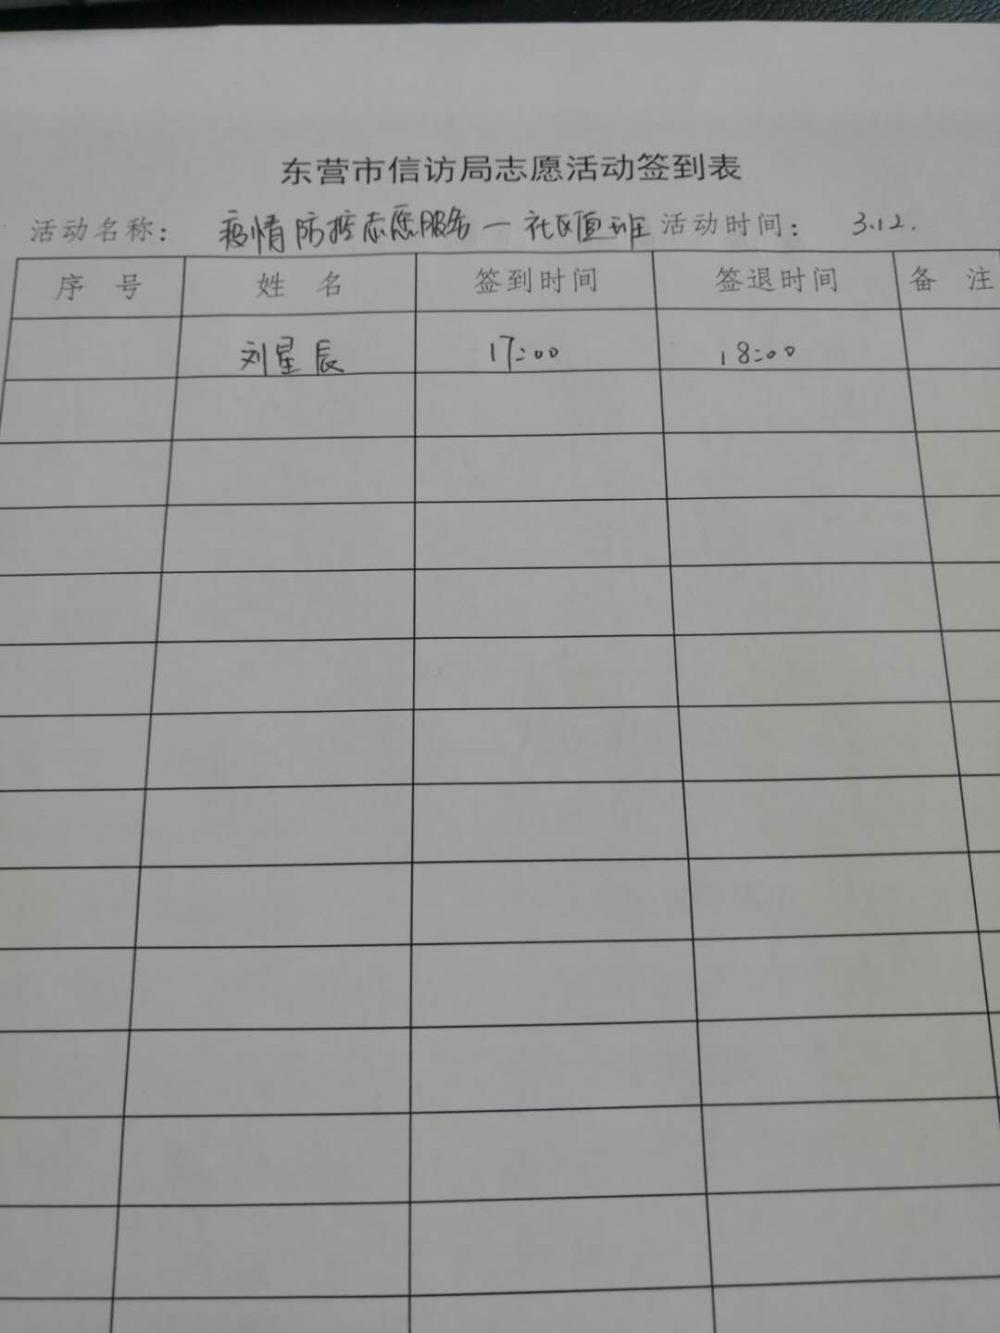 东营市信访局志愿活动签到表
活动名称： 疫情防控志愿服务一社区值班 活动时间： 3.12.
序 号 姓 名 签到时间 签退时间 备 注
刘星辰 17:00 18:00